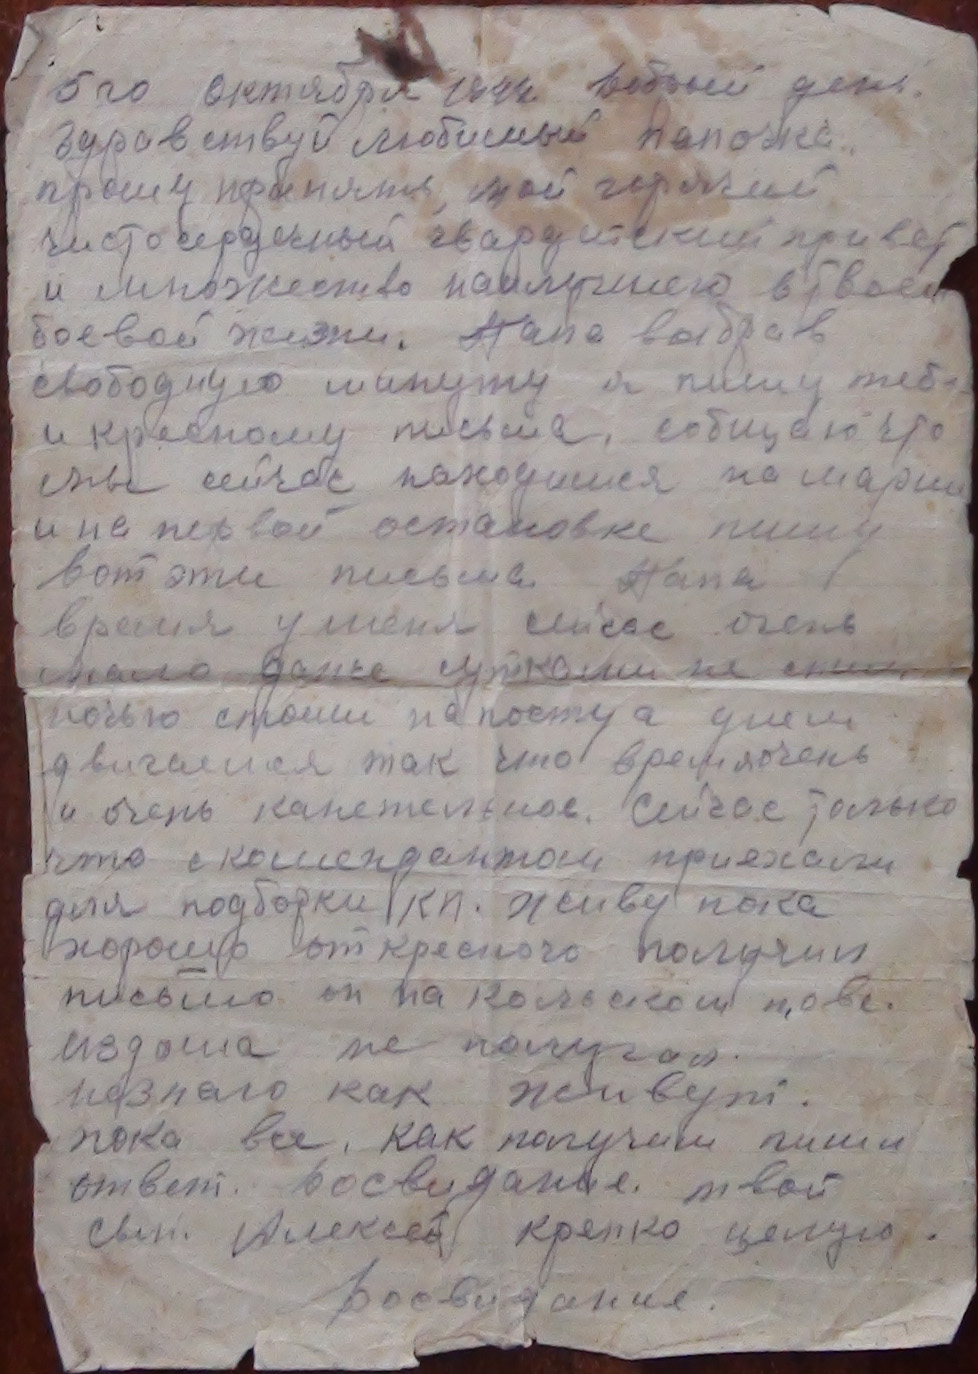 5го октября 1944 добрый день.
Здравствуй любимый Папочка.
прошу принять, мой горячий
чистосердечный гвардейский привет
и множество наилучшего в твоей
боевой жизни. Папа выбрав
свободную минуту я пишу тебе
и кресному письма, собищаю что
мы сейчас находимся на марше
и на первой остановке пишу
вот эти письма Папа
время у меня сейчас очень
мало даже сутками не спим
ночью стоим на посту а днем
двигаемся так что время очень
и очень канетельное. Сейчас только
что с комендантом приехали
для подборки КП. Живу пока
хорошо от кресного получил
письмо он на Кольском п,ове.
Издома не получал.
незнаю как живут.
пока все, как получиш пиши
ответ. Досвидание. твой
сын. Алексей крепко целую.
Досвидания.